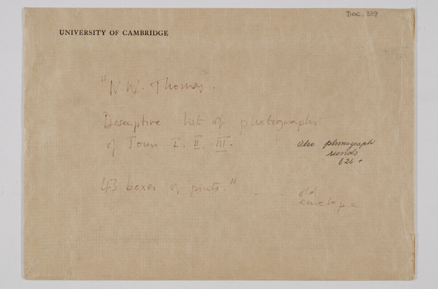 Doc. 329
UNIVERSITY OF CAMBRIDGE
"N. W. Thomas".
Descriptive list of photographs
of Tour I. II. III.
also phonograph
records
626 +
43 boxes of prints."
old
envelope